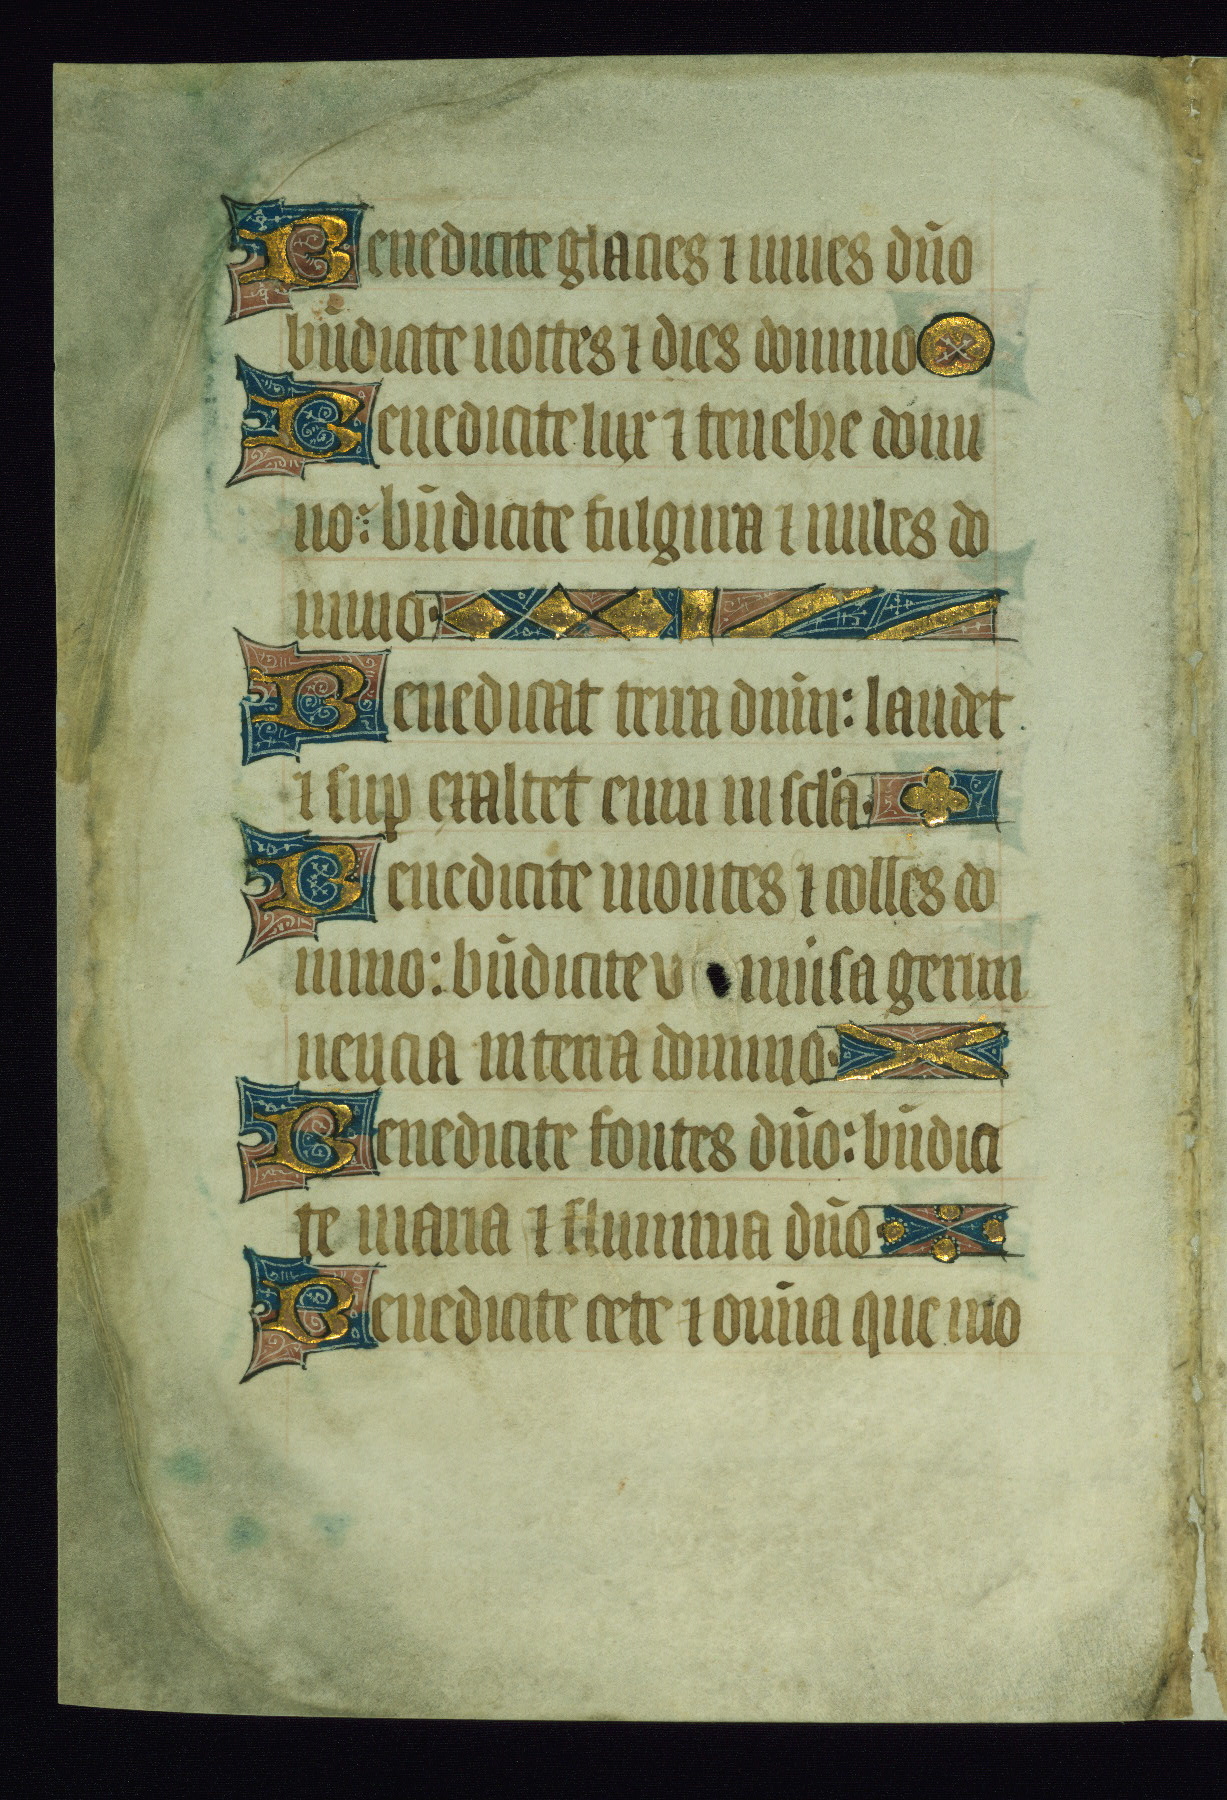 Benedicite glacies ⁊ niues dño
bñdicite noctes ⁊ dies domino
Benedicite lux ⁊ tenebre domi
no: bñdicite fulgura ⁊ nubes do
mino.
Benedicat terra dnm̄: laudet
⁊ sup exaltet eum in scła.
Benedicite montes ⁊ colles do
mino: bñdicite uniuisa germi
nencia in terra domino.
Benedicite fontes dño: bñdici
te maria ⁊ flumina dño
Benedicite cete ⁊ om̄ia que mo